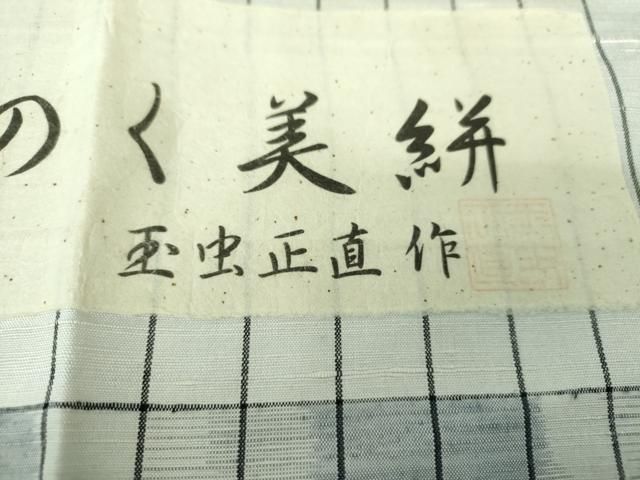 のく美絣
玉虫正直作